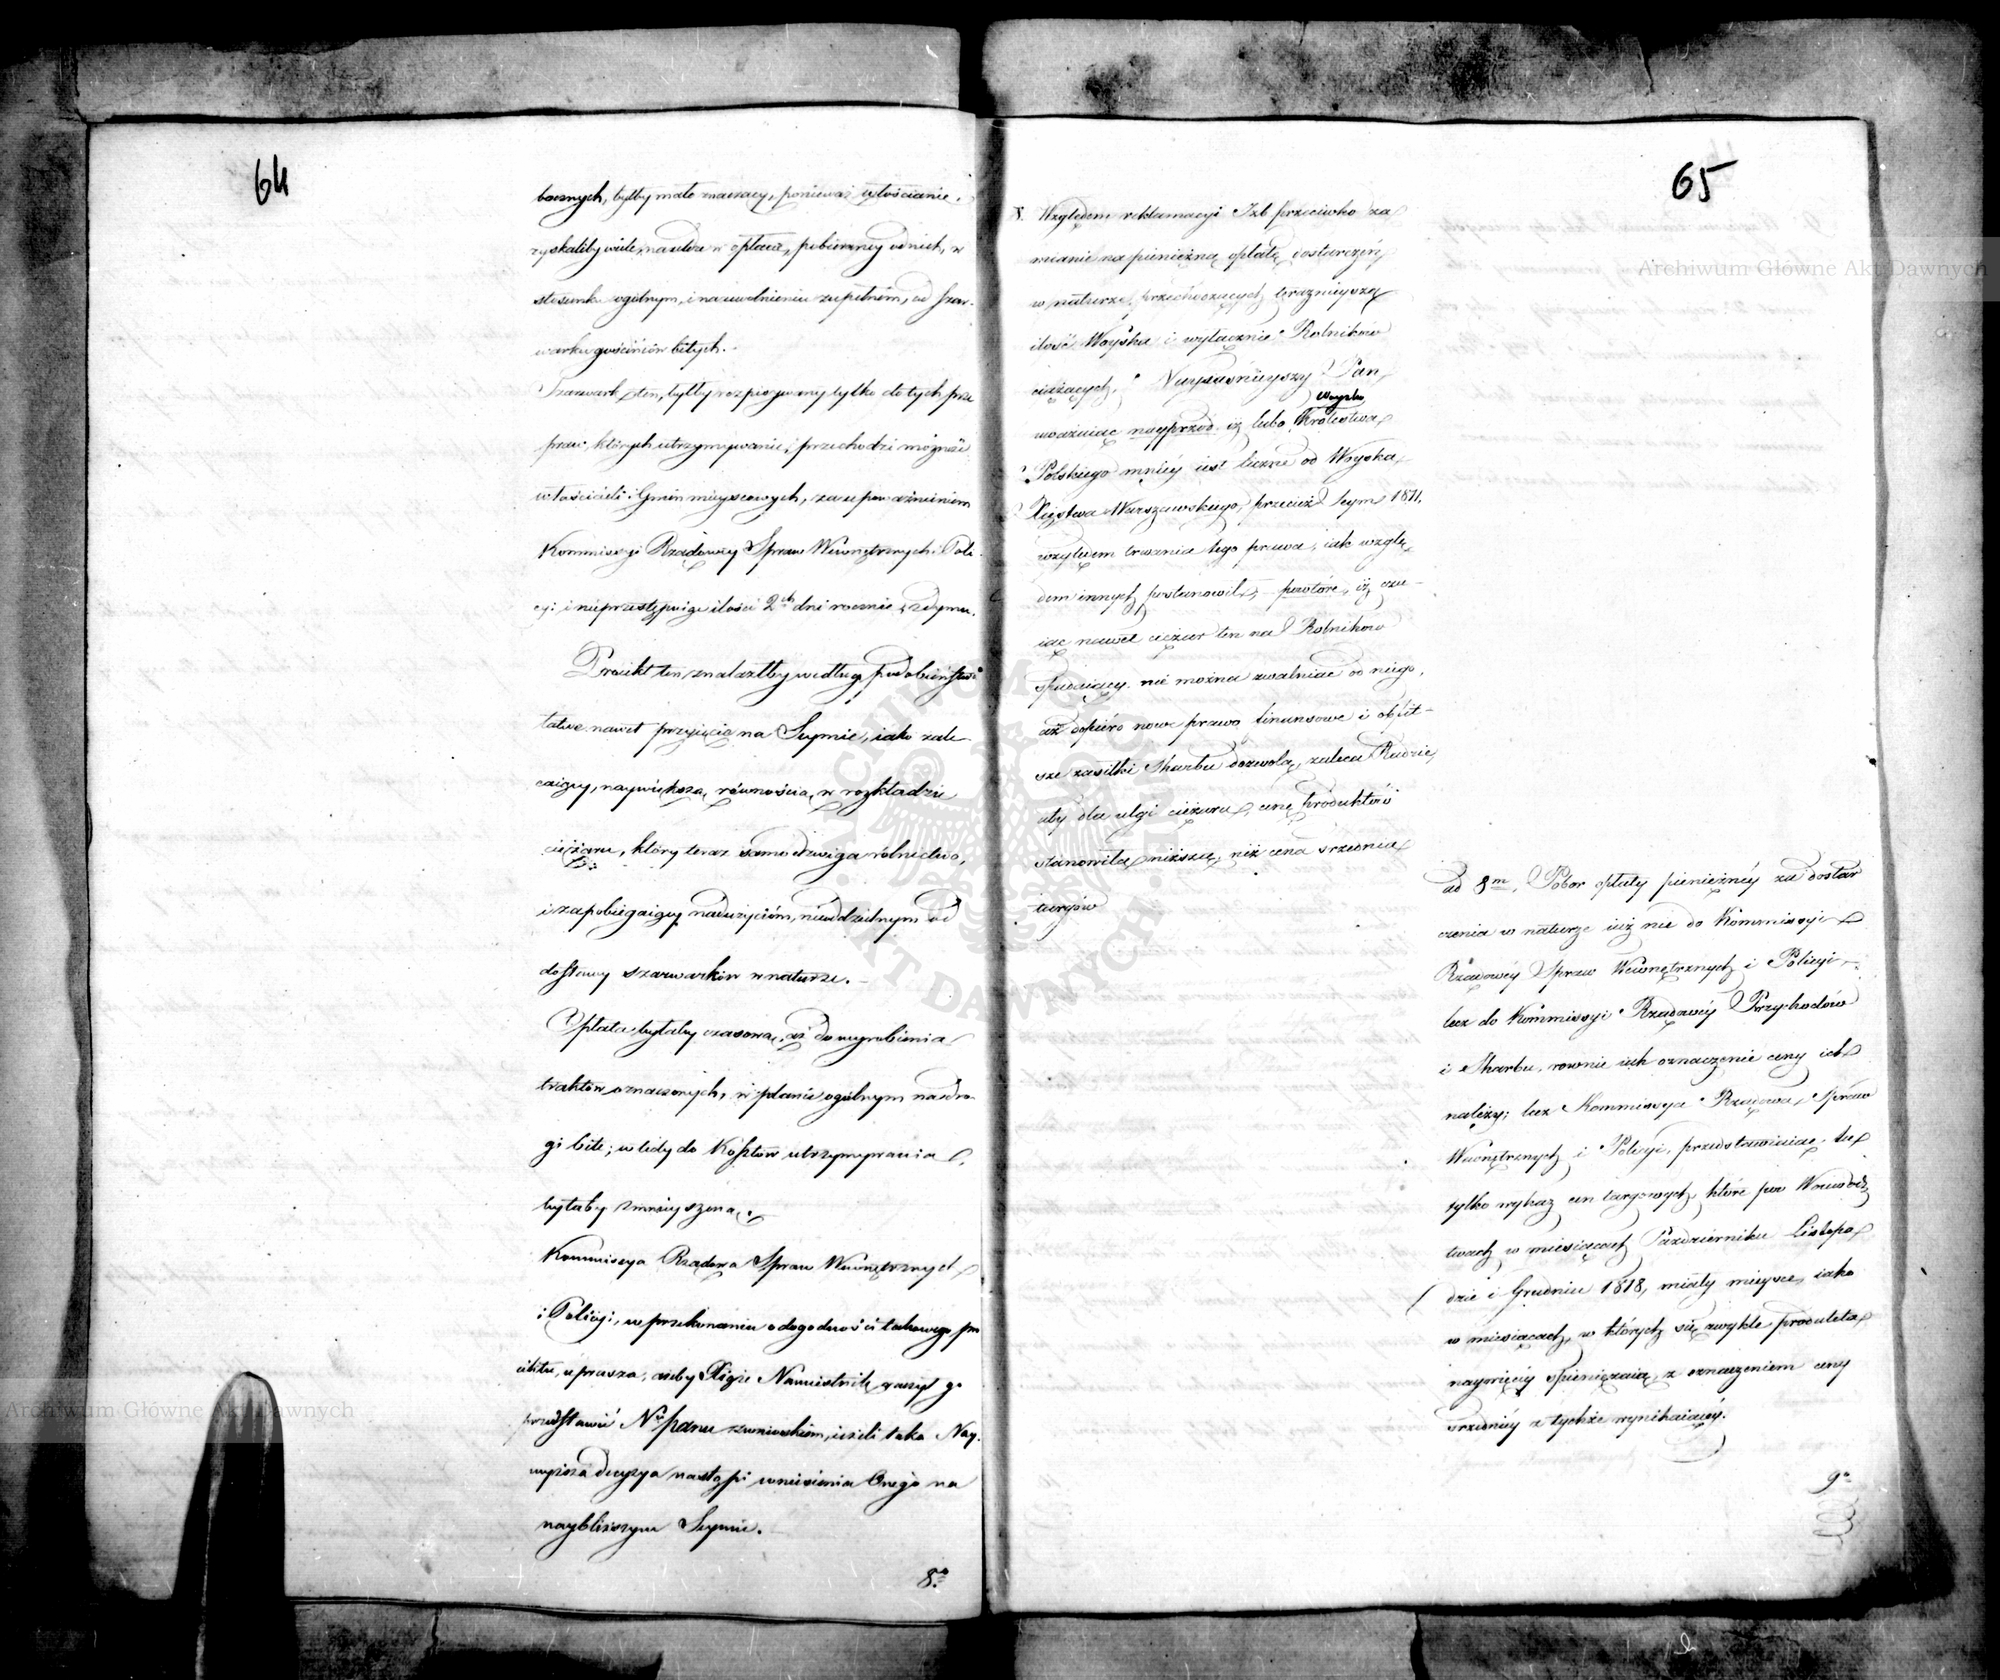 64
bocznych, byłby mało znaczący, ponieważ włościanie
zyskaliby wiele, na uldze w opłacie, pobieraney od nich, w
stosunku ogólnym, i na uwolnieniu zupełném, od szar-
warku gościńców bitych.
Szarwark ten, byłby rozpisywany tylko do tych prze
praw, których utrzymywanie, przechodzi możność
właścicieli i Gmin mieyscowych, za upoważnieniem
Kommissyi Rządowey Spraw Wewnętrznych i Poli-
cyi i nieprzestępuiąc ilości 2ch dni rocznie z dymu.
Proiekt ten znalazłby według podobieństwa
łatwe nawet przyjęcie na Seymie, iako zale-
caiący, naywiększą równością, w rozkładzie
ciężaru, który teraz samo dzwiga rólnictwo,
i zapobiegaiący nadużyciom, nieoddzielnym od
dostawy szarwarków w naturze.-
Opłata byłaby czasową, aż do wyrobienia
traktów oznaczonych, w planie ogólnym na dro-
gi bite; wtedy do Kosztów utrzymywania
byłaby zmnieyszoną.
Kommissya Rządowa Spraw Wewnętrznych
i Policyi, w przekonaniu o dogodności takowego pro
iektu, uprasza, ażeby Xiąże Namiestnik raczył go
przedstawić Nu panu z wnioskiem, ieżeli taka Nay-
wyższa decyzya nastąpi wniesienia Onego na
naybliższym Seymie.
8o
65
8. Względem reklamacyi Izb przeciwko za
mianie na pieniężną opłatę dostarczeń
w naturze, przechodzących terazniejszą
ilość Woyska i wyłącznie Rolników
ciążących. Nayiaśnieyszy Pan,
Woysko
uważaiąc nayprzód iż lubo Królestwa
Polskiego mniéy iest liczne od Woyska
Xięstwa Warszawskiego, przecież Seym 1811.
względem trwania tego prawa, iak wzglę-
dem innych postanowił, powtóre, iż czu-
iąc nawet ciężar ten na Rolników
spadaiący, nie można zwalniać od niego,
aż dopiéro nowe prawo finansowe i obfit-
sze zasiłki Skarbu dozwolą, zaleca Radzie
aby dla ulgi ciężaru, cenę produktów
stanowiła niższą, niż cena srzednia
targów
ad 8m. Pobor opłaty pieniężnéy za dostar
czenia w naturze iuż nie do Kommissyi
Rządowéy Spraw Wewnętrznych i Policyi
lecz do Kommissyi Rządowéy Przychodów
i Skarbu, rownie iak oznaczenie ceny ich
należy; lecz Kommissya Rządowa Spraw
Wewnętrznych i Policyi, przedstawiaiąc tu
tylko wykaz cen targowych, które po Woiewódz
twach w miesiącach Październiku Listopa
dzie i Grudniu 1818, miały mieysce, iako
w miesiącach, w których się zwykle produkta
naywięcéy spieniężaią, z oznaczeniem ceny
srzedniéy z tychże wynikaiącéy.
9o
Archiwum Główne Akt Dawnych
Archiwum Główne Akt Dawnych
ARCHIWUM GŁÓWNE AKT DAWNYCH